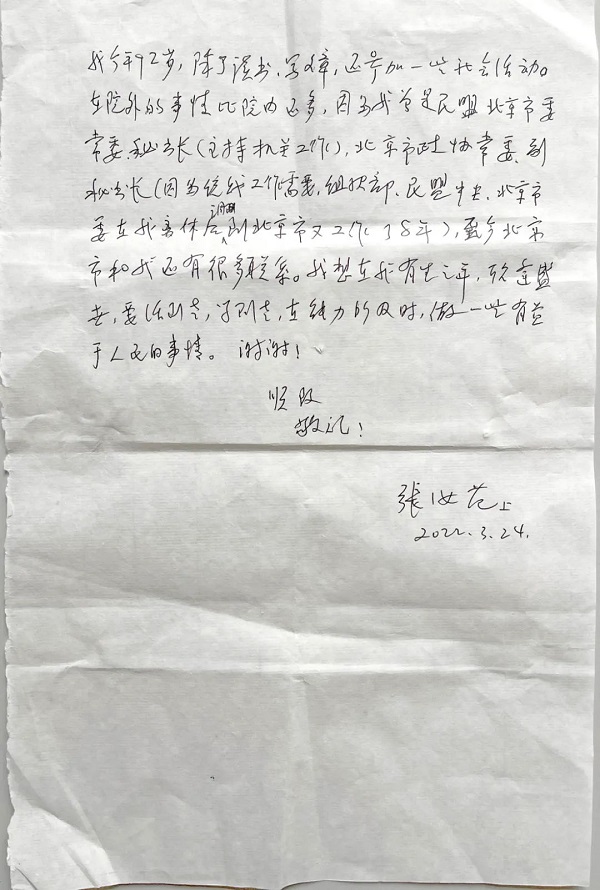 我今年92岁，除了读书、写文章，还参加一些社会活动。
在院外的事情比院内还多，因为我曾是民盟北京市委
常委、秘书长（主持机关工作），北京市政协常委、副
秘书长（因为统战工作需要，组织部、民盟中央、北京市
委在我离休后调到北京市又工作了8年），至今北京
市和我还有很多联系。我想在我有生之年，欣逢盛
世，要活到老，学到老，在能力的及时，做一些有益
于人民的事情。谢谢！
顺致
敬礼！
張女范上
2022.3.24.